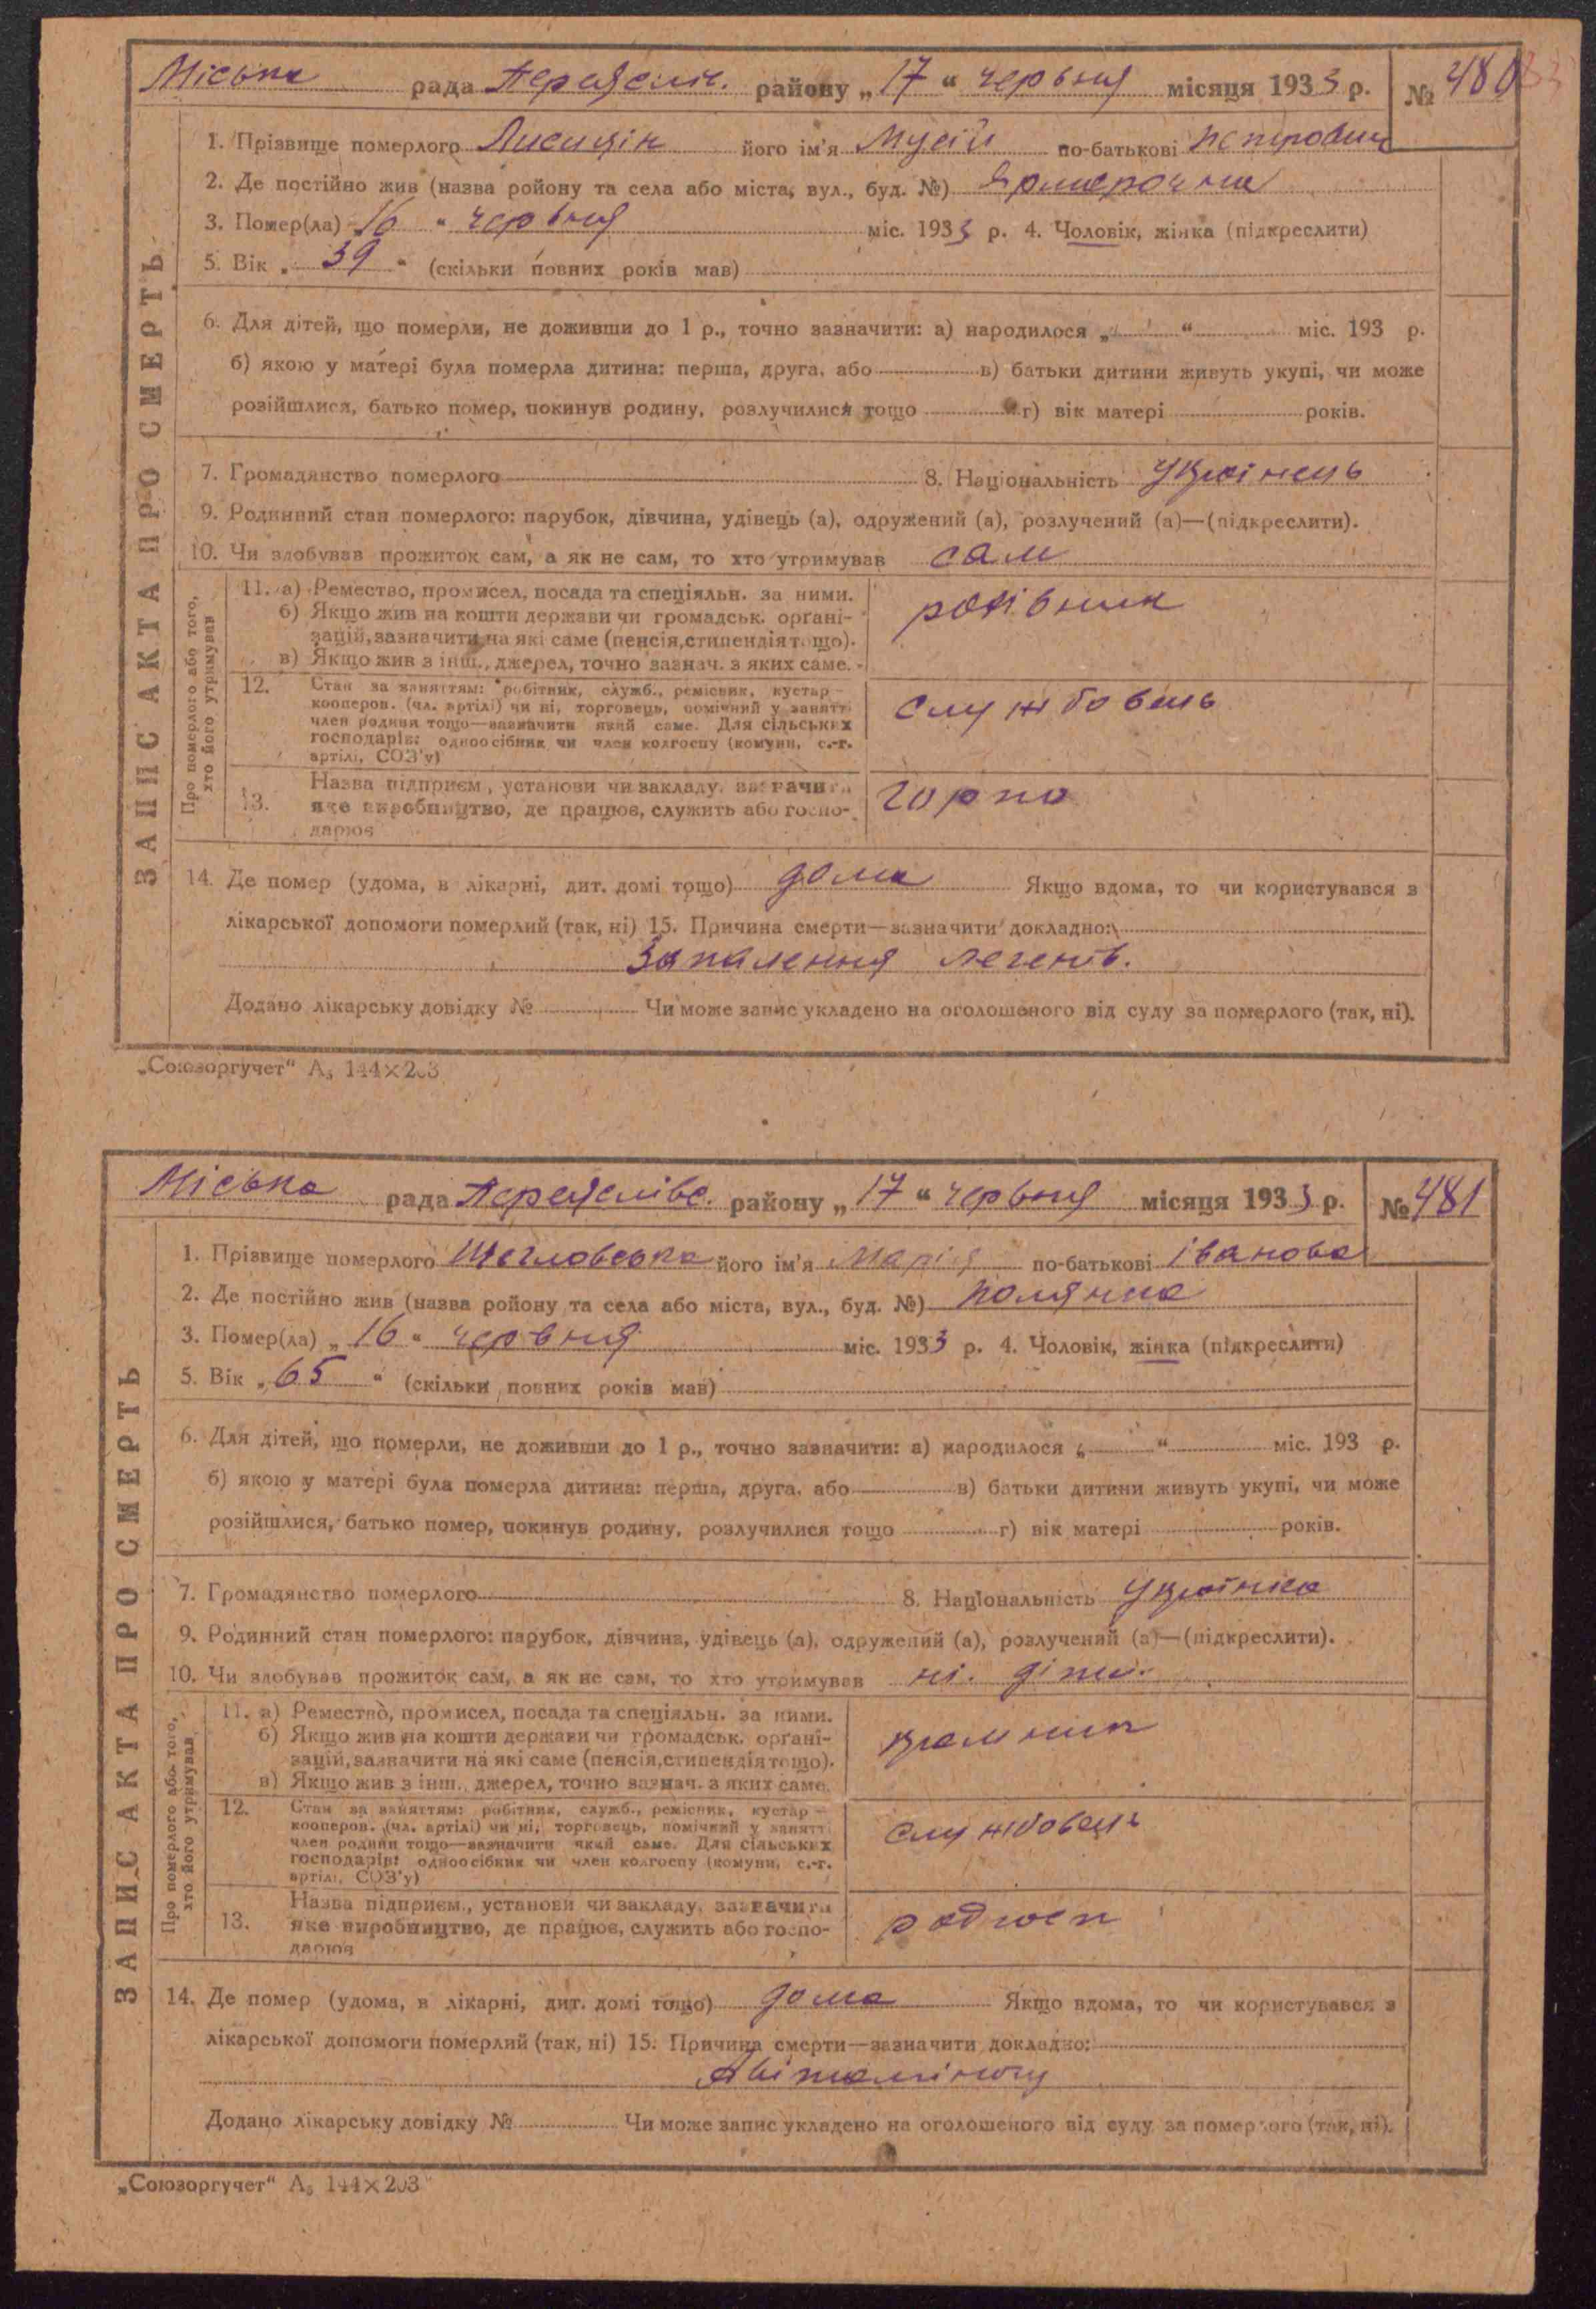 Міська рада Переяслів. району „17“ червня місяця 1933 р. № 480
1. Прізвище померлого Лисицін його ім'я Мусій по-батькові Петрович
2. Де постійно жив (назва ройону та села або міста, вул., буд. №) Ярмерочна
3. Помер(ла) „16“ червня міс. 1933 р. 4. Чоловік, жінка (підкреслити)
5. Вік „39“ (скільки повних років мав)
6. Для дітей, що померли, не доживши до 1 р., точно зазначити: а) народилося „ “ міс. 193 р.
б) якою у матері була померла дитина: перша, друга, або в) батьки дитини живуть укупі, чи може
розійшлися, батько помер, покинув родину, розлучилися тощо г) вік матері років.
7. Громадянство померлого 8. Національність Українець
9. Родинний стан померлого: парубок, дівчина, удівець (а), одружений (а), розлучений (а)—(підкреслити).
10. Чи здобував прожиток сам, а як не сам, то хто утримував сам
ЗАПИС АКТА ПРО СМЕРТЬ
Про померлого або того,
хто його утримував
11. а) Ремество, промисел, посада та спеціяльн. за ними.
б) Якщо жив на кошти держави чи громадськ. орґані-
зацій, зазначити на які саме (пенсія, стипендія тощо).
в) Якщо жив з інш., джерел, точно зазнач. з яких саме.
12. Стан за заняттям: робітник, служб., ремісник, кустар—
кооперов. (чл. артілі) чи ні, торговець, помічний у занятті
член родини тощо—зазначити який саме. Для сільських
господарів: одноосібник чи член колгоспу (комуни, с.-г.
артілі, СОЗ'у)
службовець
13. Назва підприєм., установи чи закладу, зазначити
яке виробництво, де працює, служить або госпо-
дарює
горпо
14. Де помер (удома, в лікарні, дит. домі тощо) дома Якщо вдома, то чи користувався з
лікарської допомоги померлий (так, ні) 15. Причина смерти—зазначити докладно:
Запалення легенів.
Додано лікарську довідку № Чи може запис укладено на оголошеного від суду за померлого (так, ні).
„Союзоргучет“ А₅ 144×203
Міська рада Переяслівс. району „17“ червня місяця 1933 р. № 481
1. Прізвище померлого Щегловська його ім'я Марія по-батькові Іванова
2. Де постійно жив (назва ройону та села або міста, вул., буд. №) Полянка
3. Помер(ла) „16“ червня міс. 1933 р. 4. Чоловік, жінка (підкреслити)
5. Вік „65“ (скільки повних років мав)
6. Для дітей, що померли, не доживши до 1 р., точно зазначити: а) народилося „ “ міс. 193 р.
б) якою у матері була померла дитина: перша, друга, або в) батьки дитини живуть укупі, чи може
розійшлися, батько помер, покинув родину, розлучилися тощо г) вік матері років.
7. Громадянство померлого 8. Національність Українка
9. Родинний стан померлого: парубок, дівчина, удівець (а), одружений (а), розлучений (а)—(підкреслити).
10. Чи здобував прожиток сам, а як не сам, то хто утримував ні. діти.
ЗАПИС АКТА ПРО СМЕРТЬ
Про померлого або того,
хто його утримував
11. а) Ремество, промисел, посада та спеціяльн. за ними.
б) Якщо жив на кошти держави чи громадськ. орґані-
зацій, зазначити на які саме (пенсія, стипендія тощо).
в) Якщо жив з інш., джерел, точно зазнач. з яких саме.
крамник
12. Стан за заняттям: робітник, служб., ремісник, кустар—
кооперов. (чл. артілі) чи ні, торговець, помічний у занятті
член родини тощо—зазначити який саме. Для сільських
господарів: одноосібник чи член колгоспу (комуни, с.-г.
артілі, СОЗ'у)
службовець
13. Назва підприєм., установи чи закладу, зазначити
яке виробництво, де працює, служить або госпо-
дарює
14. Де помер (удома, в лікарні, дит. домі тощо) дома Якщо вдома, то чи користувався з
лікарської допомоги померлий (так, ні) 15. Причина смерти—зазначити докладно:
Авітаміноз
Додано лікарську довідку № Чи може запис укладено на оголошеного від суду за померлого (так, ні).
„Союзоргучет“ А₅ 144×203